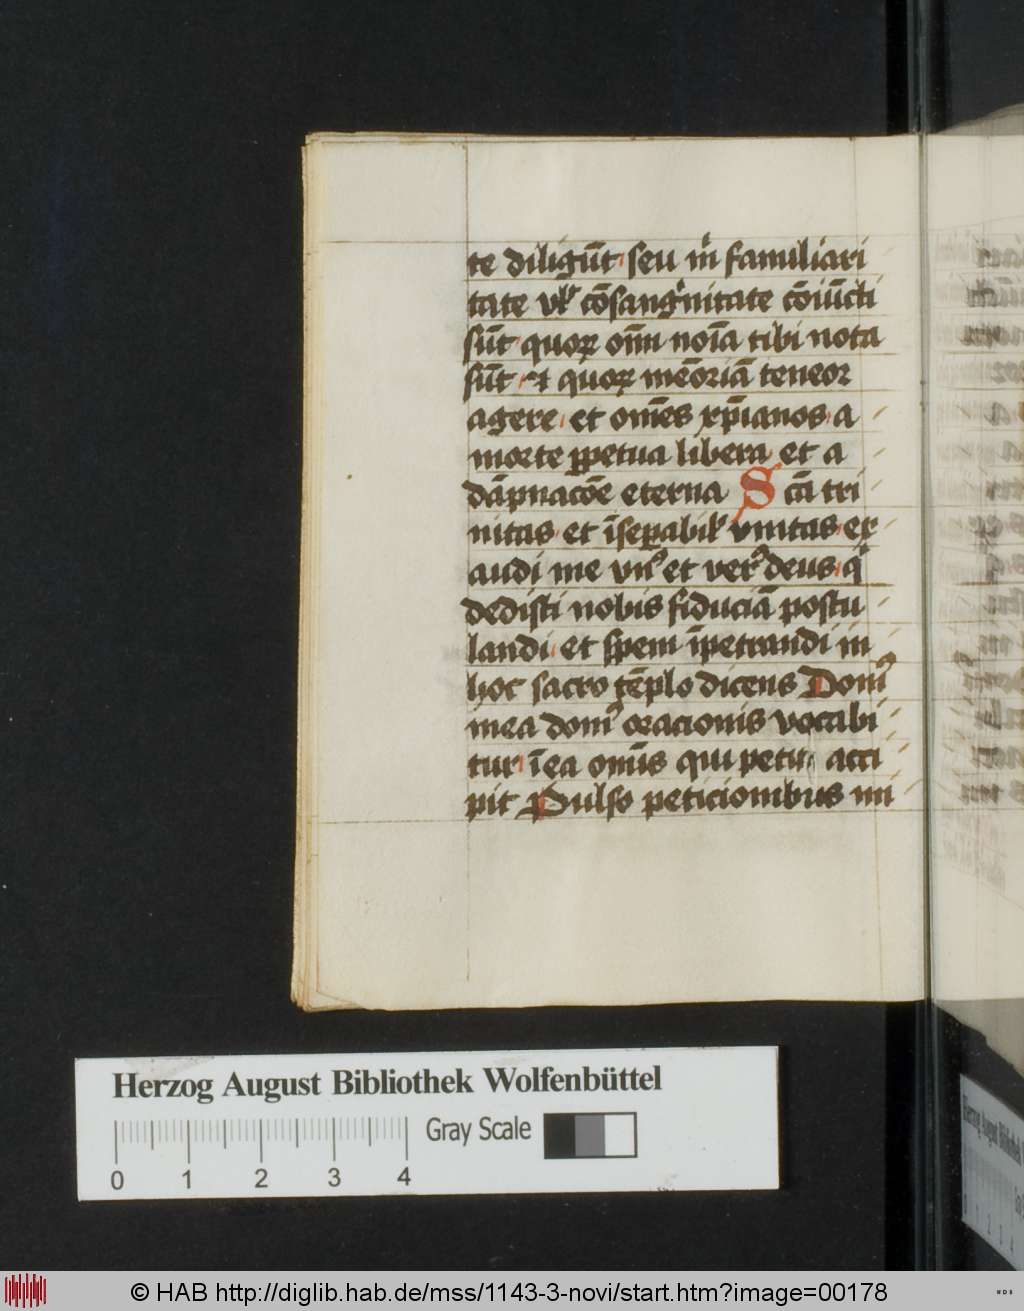 te diligūt seu m̄ familiari
tate vl̄ cōsangⁱnitate cōiūcti
sūt quoꝝ om̄ noīa tibi nota
sūt et quoꝝ mēoriā teneor
agere et om̄es xp̄ianos a
morte ꝑpetua libera et a
dāpnacōe eterna Scā tri
nitas et īseꝑabil̓ vnitas ex
audi me vnꝰ et verꝰ deus qⁱ
dedisti nobis fiduciā postu
landi et spem īpetrandi in
hoc sacro tēplo dicens Domꝰ
mea domꝰ oracionis vocabi
tur ī ea om̄is qui petit acci
pit Pulso peticionibus mi
Herzog August Bibliothek Wolfenbüttel
Gray Scale
0 1 2 3 4
© HAB http://diglib.hab.de/mss/1143-3-novi/start.htm?image=00178